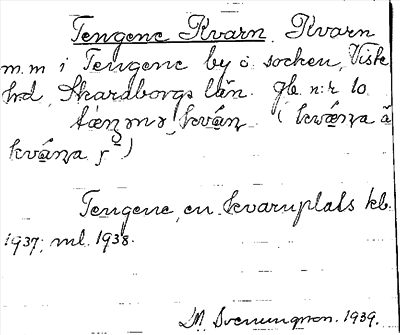 Tengene Kvarn. Kvarn
m.m i Tengene by o. socken, Viste
hrd, Skaraborgs län. Jb. n:r 10.
Tengene, en kvarnplats kb.
1937; ml. 1938.
M Svenungson. 1939.